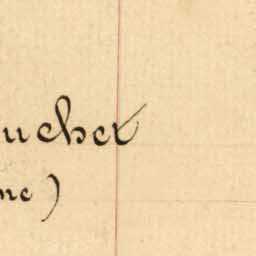 ucher
ne)